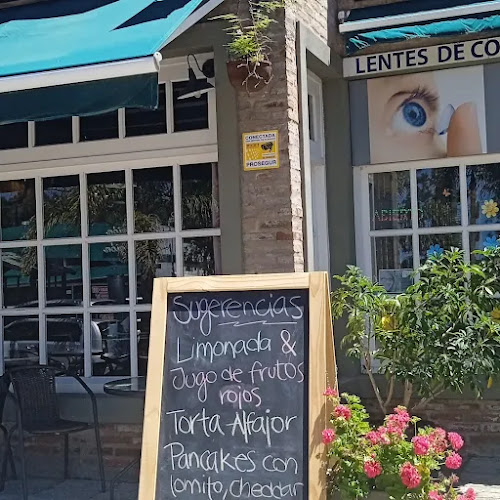 LENTES DE CO
CONECTADA
PROSEGUR
ABIERTO
Sugerencias
Limonada &
Jugo de frutos
rojos
Torta Alfajor
Pancakes con
lomito, cheddar